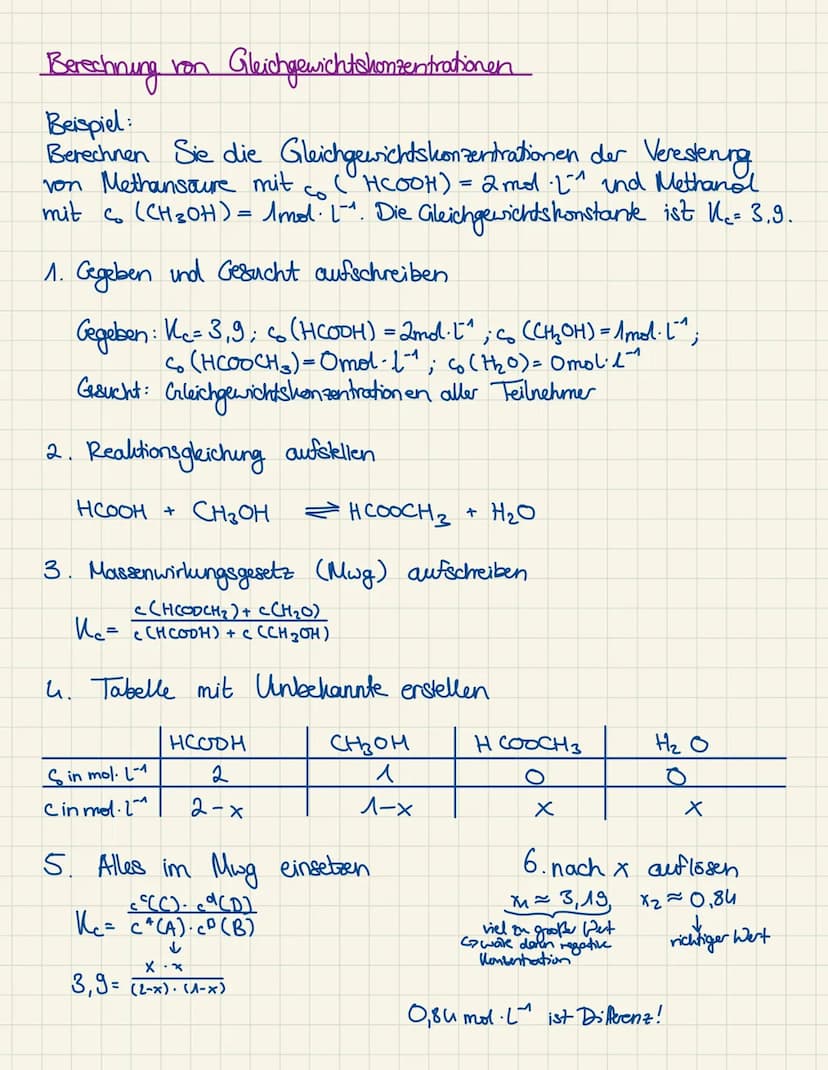 Berechnung von Gleichgewichtskonzentrationen
Beispiel:
Berechnen Sie die Gleichgewichtskonzentrationen der Veresterung
von Methansäure mit c₀ (HCOOH) = 2 mol · L⁻¹ und Methanol
mit c₀ (CH3OH) = 1mol · L⁻¹. Die Gleichgewichtskonstante ist Kc = 3,9.
1. Gegeben und Gesucht aufschreiben
Gegeben: Kc = 3,9; c₀ (HCOOH) = 2mol · L⁻¹ ; c₀ (CH₃OH) = 1mol · L⁻¹;
c₀ (HCOOCH₃) = 0mol · L⁻¹ ; c₀ (H₂O) = 0mol · L⁻¹
Gesucht: Gleichgewichtskonzentrationen aller Teilnehmer
2. Reaktionsgleichung aufstellen
HCOOH + CH₃OH ⇌ HCOOCH₃ + H₂O
3. Massenwirkungsgesetz (Mwg) aufschreiben
c(HCOOCH₃) + c(H₂O)
Kc = c(HCOOH) + c (CH₃OH)
4. Tabelle mit Unbekannte erstellen
HCOOH CH₃OH HCOOCH₃ H₂O
c₀ in mol · L⁻¹ 2 1 0 0
c in mol · L⁻¹ 2-x 1-x x x
5. Alles im Mwg einsetzen
Kc = cᶜ(C) · cᵈ(D)
cᴬ(A) · cᴰ(B)
↓
3,9 = x · x
(2-x) · (1-x)
6. nach x auflösen
x₁ ≈ 3,19, x₂ ≈ 0,84
viel zu großer Wert
↳ wäre dann negative
Konzentration
↓
richtiger Wert
0,84 mol · L⁻¹ ist Differenz!